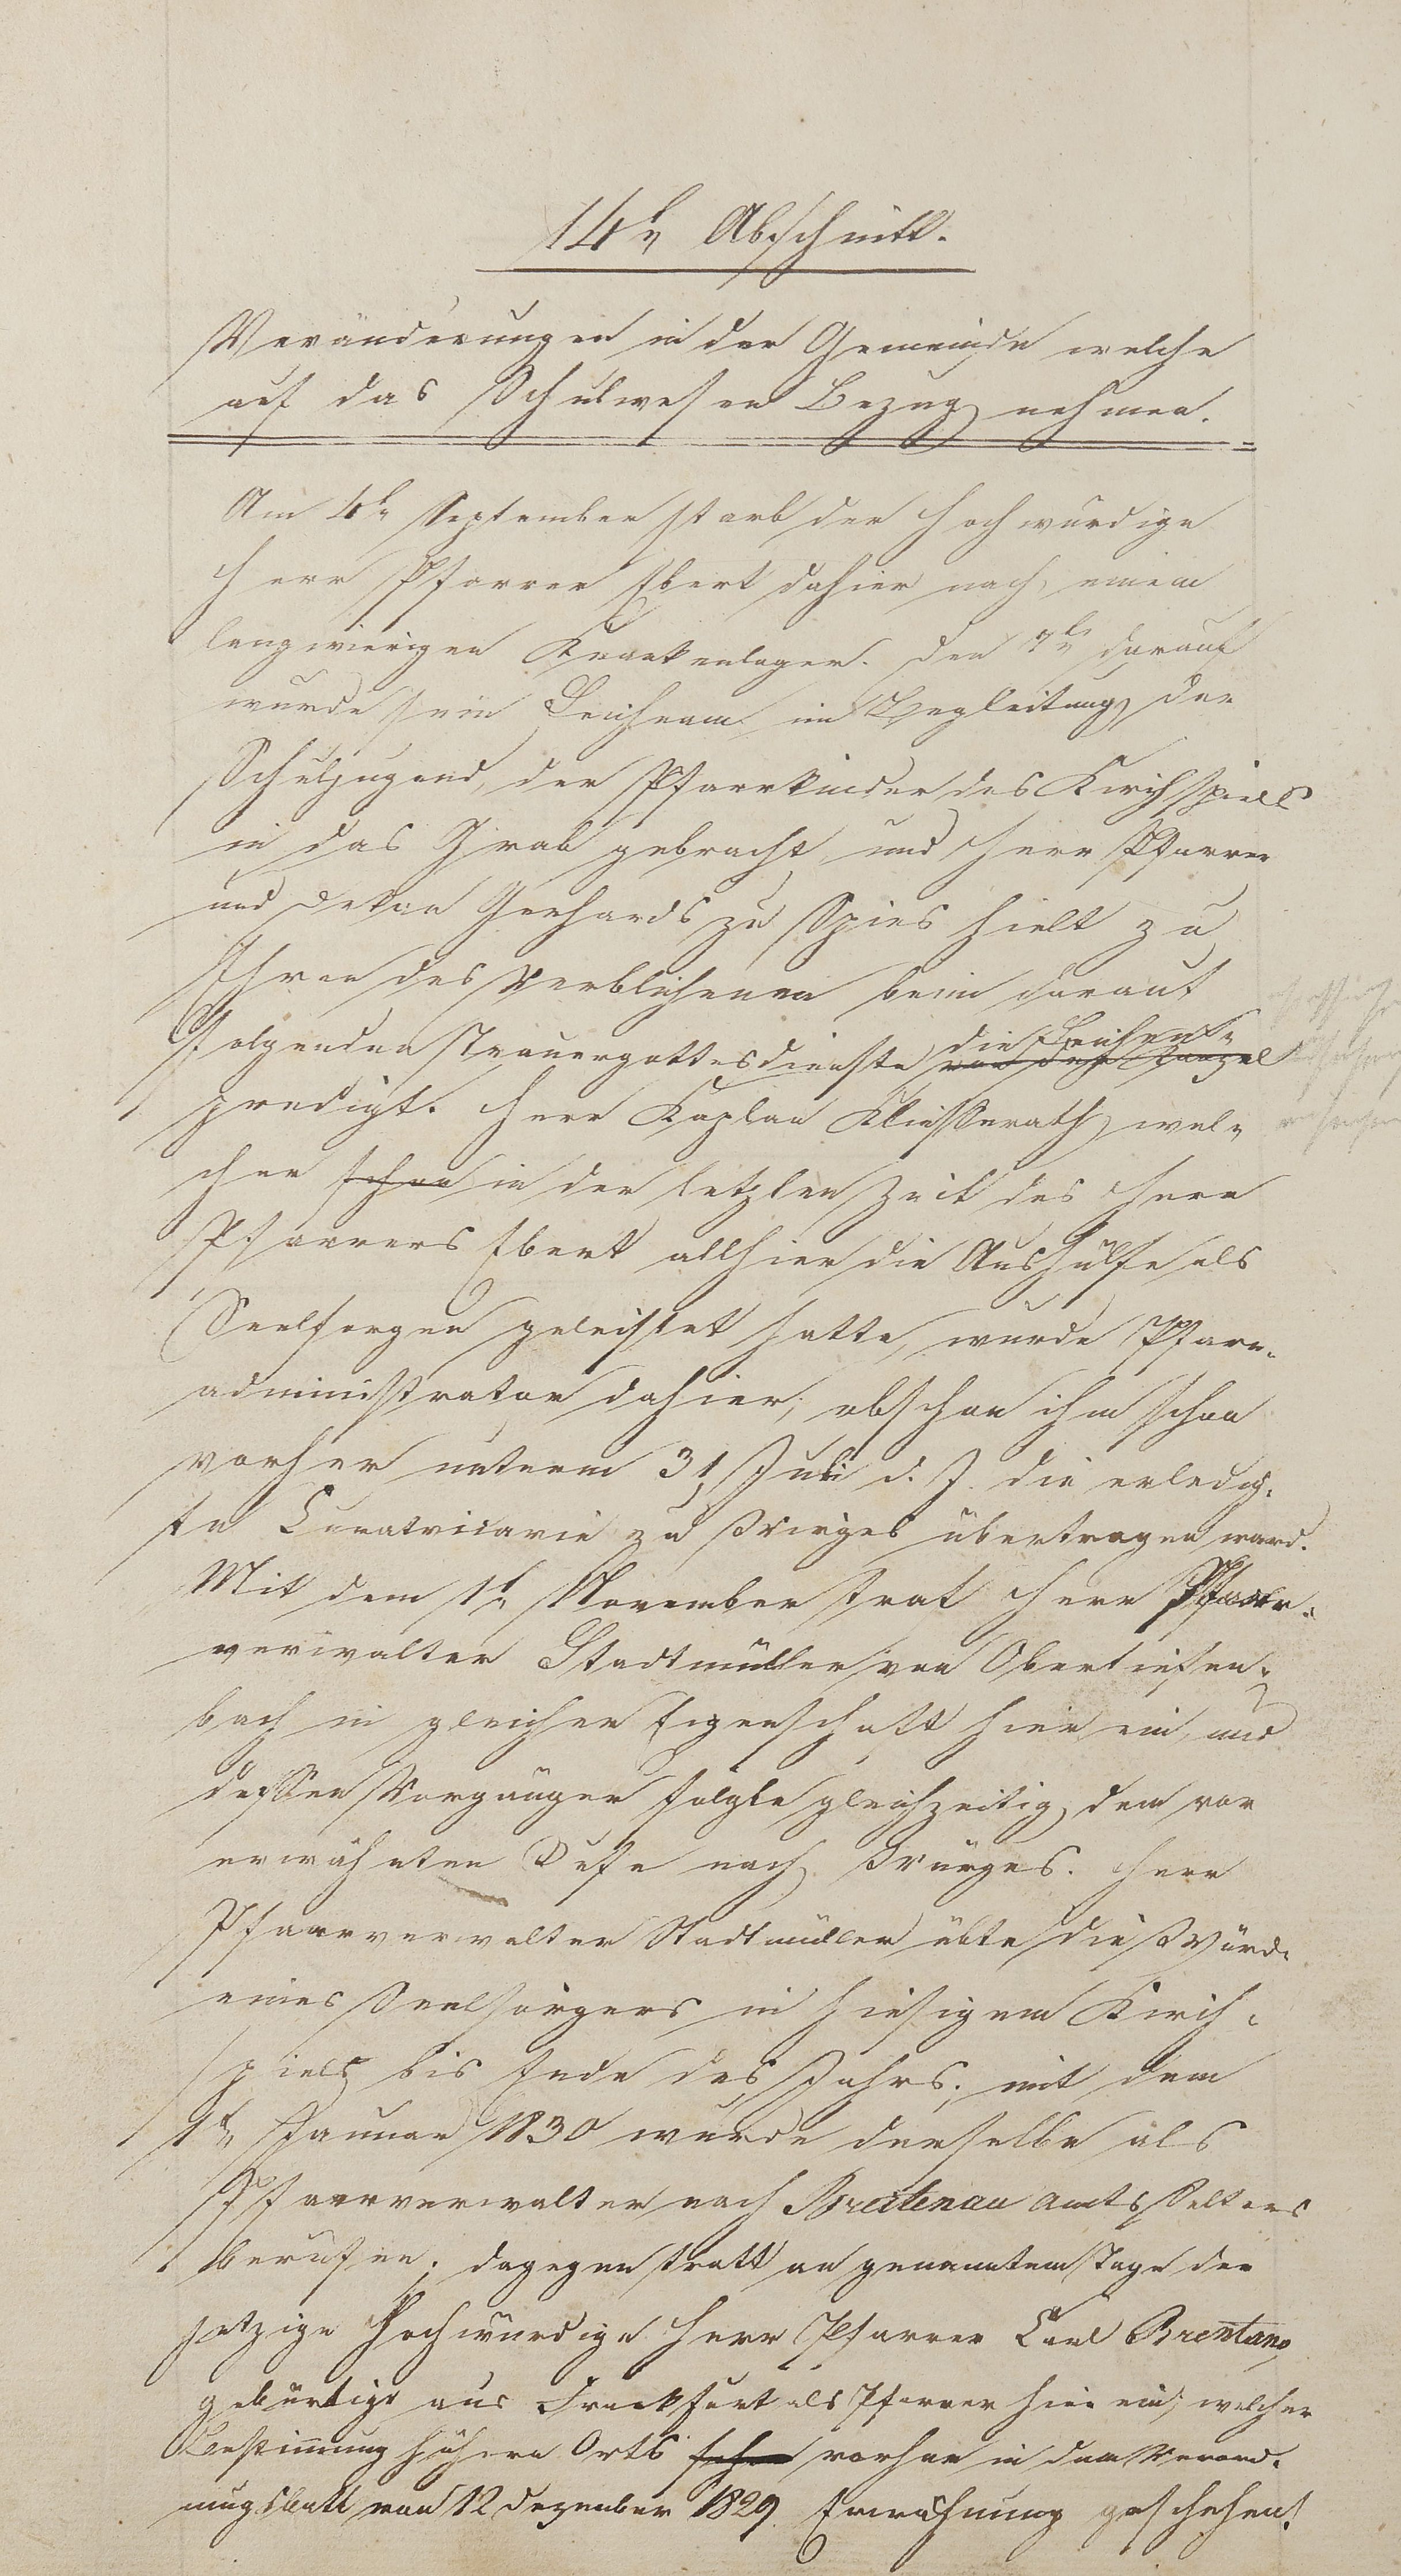 14tr Abschnitt.
Veränderungen in der Gemeinde welche
auf das Schulwesen Bezug nehmen.
Am 4tn September starb der hochwürdige
Herr Pfarrer Ebert dahier nach einem
langwierigen Krankenlager. Den 7tn darauf
wurde sein Leichnam in Begleitung der
Schuljugend, der Pfarrkinder des Kirchspiels
in das Grab gebracht, und Herr Pfarrer
und Dekan Gerhards zu Spies hielt zu
Ehren des Verblichenen beim darauf
folgenden Trauergottesdienste von der Kanzel die Leichen-
predigt. Herr Kaplan Kliesserath, wel-
cher schon in der letzten Zeit des Herrn
Pfarrers Ebert allhier die Aushülfe als
Seelsorger geleistet hatte, wurde Pfarr-
administrator dahier; obschon ihm schon
vorher unterm 31 Juli d. J. die erledig-
te Curatvicarie zu Wirges übertragen ward.
Mit dem 1tn November trat Herr Pfarr-
verwalter Stadtmüller von Obertiefen-
bach in gleicher Eigenschaft hier ein, und
dessen Vorgänger folgte gleichzeitig dem vor
erwähnten Rufe nach Wirges. Herr
Pfarrverwalter Stadtmüller übte die Würde
eines Seelsorgers in hiesigem Kirch-
spiels bis Ende des Jahrs; mit dem
1tn Januar 1830 wurde derselbe als
Pfarrverwalter nach Breitenau Amts Selters
berufen; dagegen tratt an genanntem Tage der
jetzige hochwürdige Herr Pfarrer Carl Brentano
gebürtigt aus Frankfurt als Pfarrer hier ein, welcher
Bestimmung höhern Orts schon vorher in dem Verord-
nungsblatt vom 12 Dezember 1829. Erwähnung geschehen!